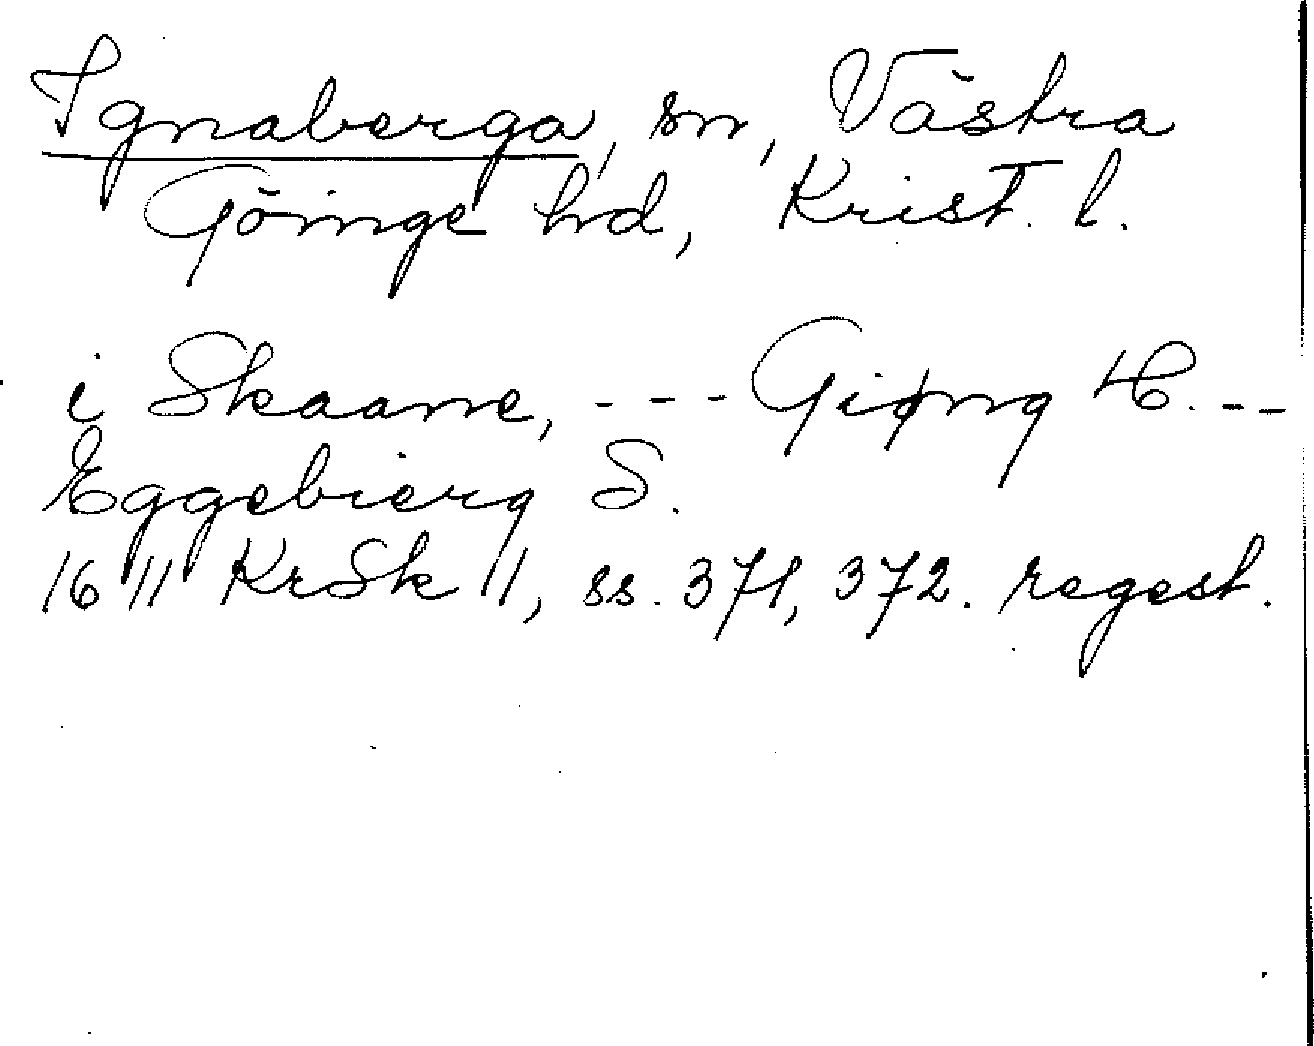 Ignaberga, sn, Västra
Göinge hd, Krist. l.
i Skaane, --- Giøng H. --
Eggebierg S.
1611 KrSk 11, ss. 371, 372. regest.